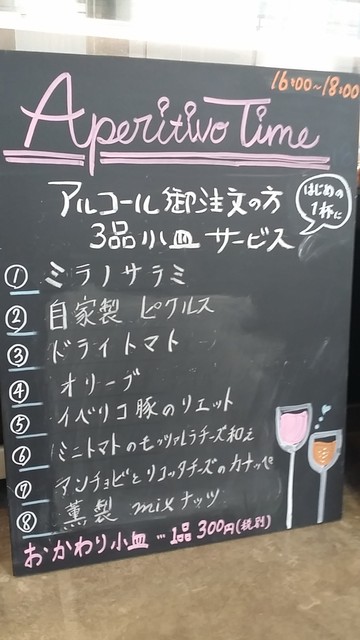 16:00~18:00
Aperitivo Time
アルコール御注文の方
はじめの
1杯に
3品小皿サービス
① ミラノサラミ
② 自家製 ピクルス
③ ドライトマト
④ オリーブ
⑤ イベリコ豚のリエット
⑥ ミニトマトのモッツァレラチーズ和え
⑦ アンチョビとリコッタチーズのカナッペ
⑧ 薫製 mixナッツ
おかわり小皿…1品300円(税別)